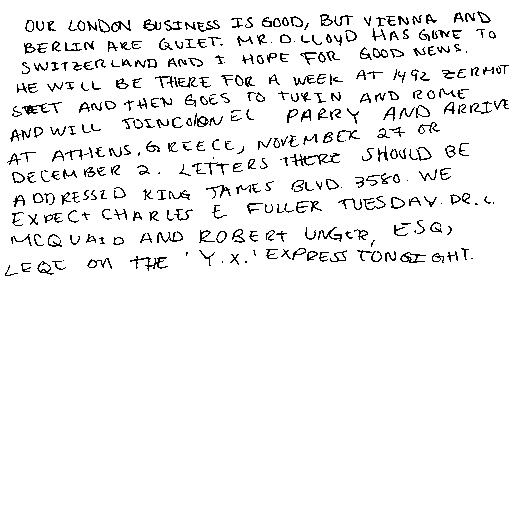 OUR LONDON BUSINESS IS GOOD, BUT VIENNA AND
BERLIN ARE QUIET. MR. D. LLOYD HAS GONE TO
SWITZERLAND AND I HOPE FOR GOOD NEWS.
HE WILL BE THERE FOR A WEEK AT 1492 ZERMOT
STEET AND THEN GOES TO TURIN AND ROME
AND WILL JOIN COLONEL PARRY AND ARRIVE
AT ATHENS, GREECE, NOVEMBER 27 OR
DECEMBER 2. LETTERS THERE SHOULD BE
ADDRESSED KING JAMES BLVD. 3580. WE
EXPECT CHARLES E FULLER TUESDAY. DR. L.
MCQUAID AND ROBERT UNGER, ESQ,
LEQT ON THE 'Y.X.' EXPRESS TONGIGHT.